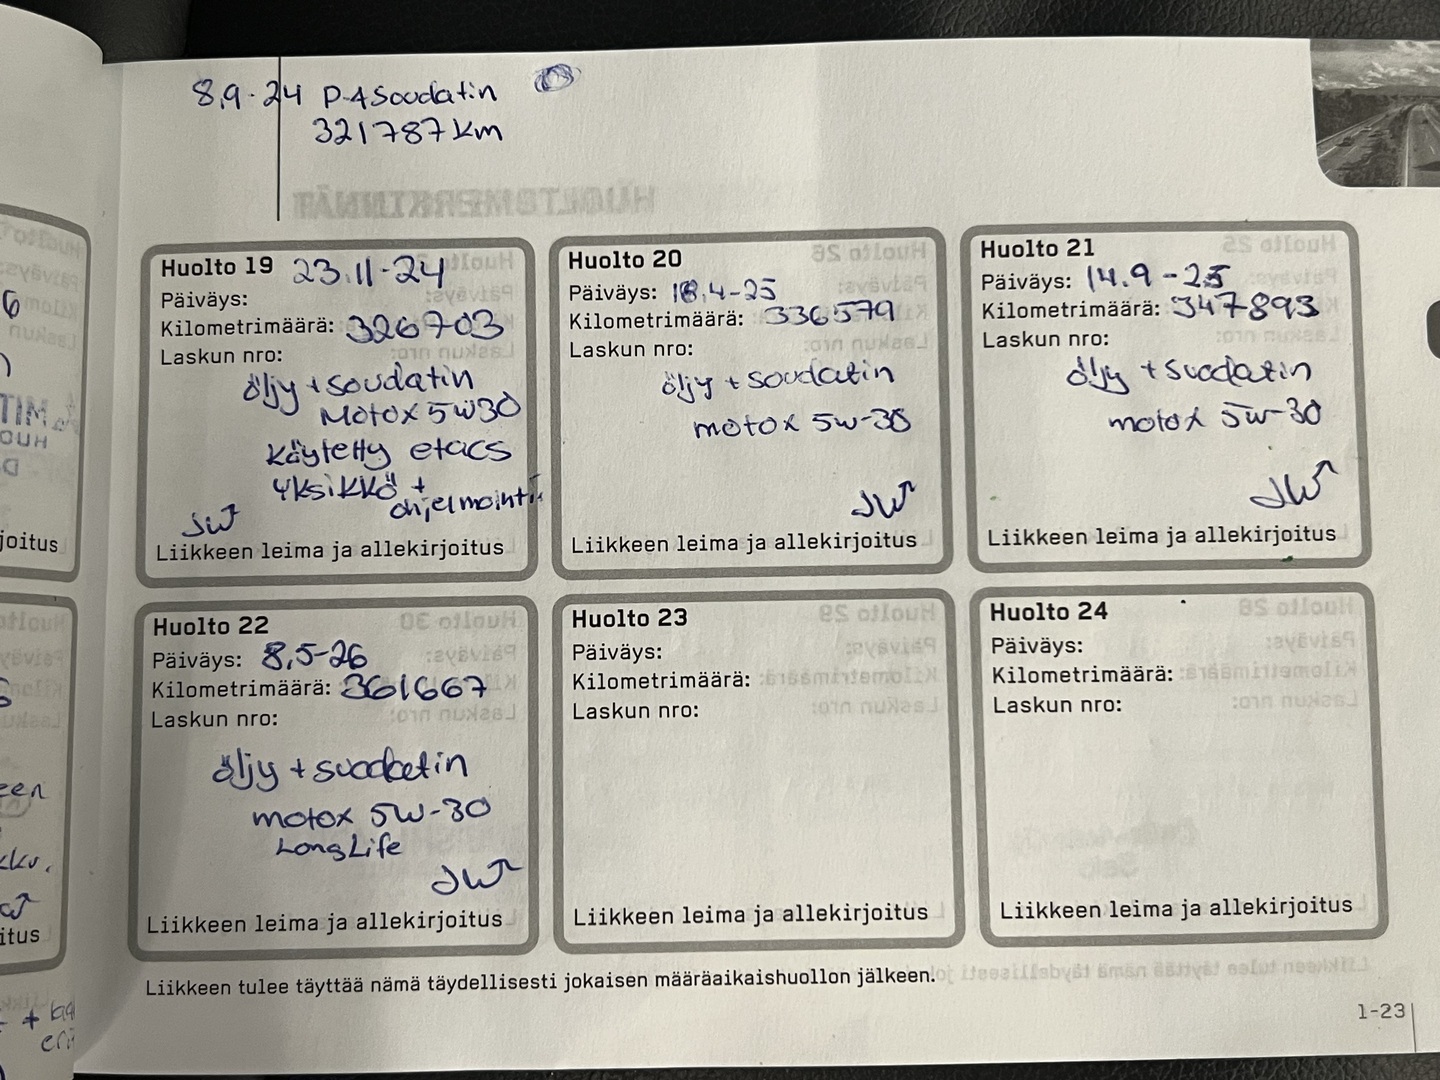 8.9-24 P-ASuodatin
321787 km
Huolto 19 23.11-24
Päiväys:
Kilometrimäärä: 326703
Laskun nro:
öljy + suodatin
Motox 5W30
Käytetty etacs
Yksikkö +
ohjelmointi
JW
Liikkeen leima ja allekirjoitus
Huolto 20
Päiväys: 18.4-25
Kilometrimäärä: 336579
Laskun nro:
öljy + suodatin
motox 5w-30
JW
Liikkeen leima ja allekirjoitus
Huolto 21
Päiväys: 14.9-25
Kilometrimäärä: 347893
Laskun nro:
öljy + suodatin
motox 5w-30
JW
Liikkeen leima ja allekirjoitus
Huolto 22
Päiväys: 8.5-26
Kilometrimäärä: 361667
Laskun nro:
öljy + suodatin
motox 5W-30
LongLife
JW
Liikkeen leima ja allekirjoitus
Huolto 23
Päiväys:
Kilometrimäärä:
Laskun nro:
Liikkeen leima ja allekirjoitus
Huolto 24
Päiväys:
Kilometrimäärä:
Laskun nro:
Liikkeen leima ja allekirjoitus
Liikkeen tulee täyttää nämä täydellisesti jokaisen määräaikaishuollon jälkeen.
1-23